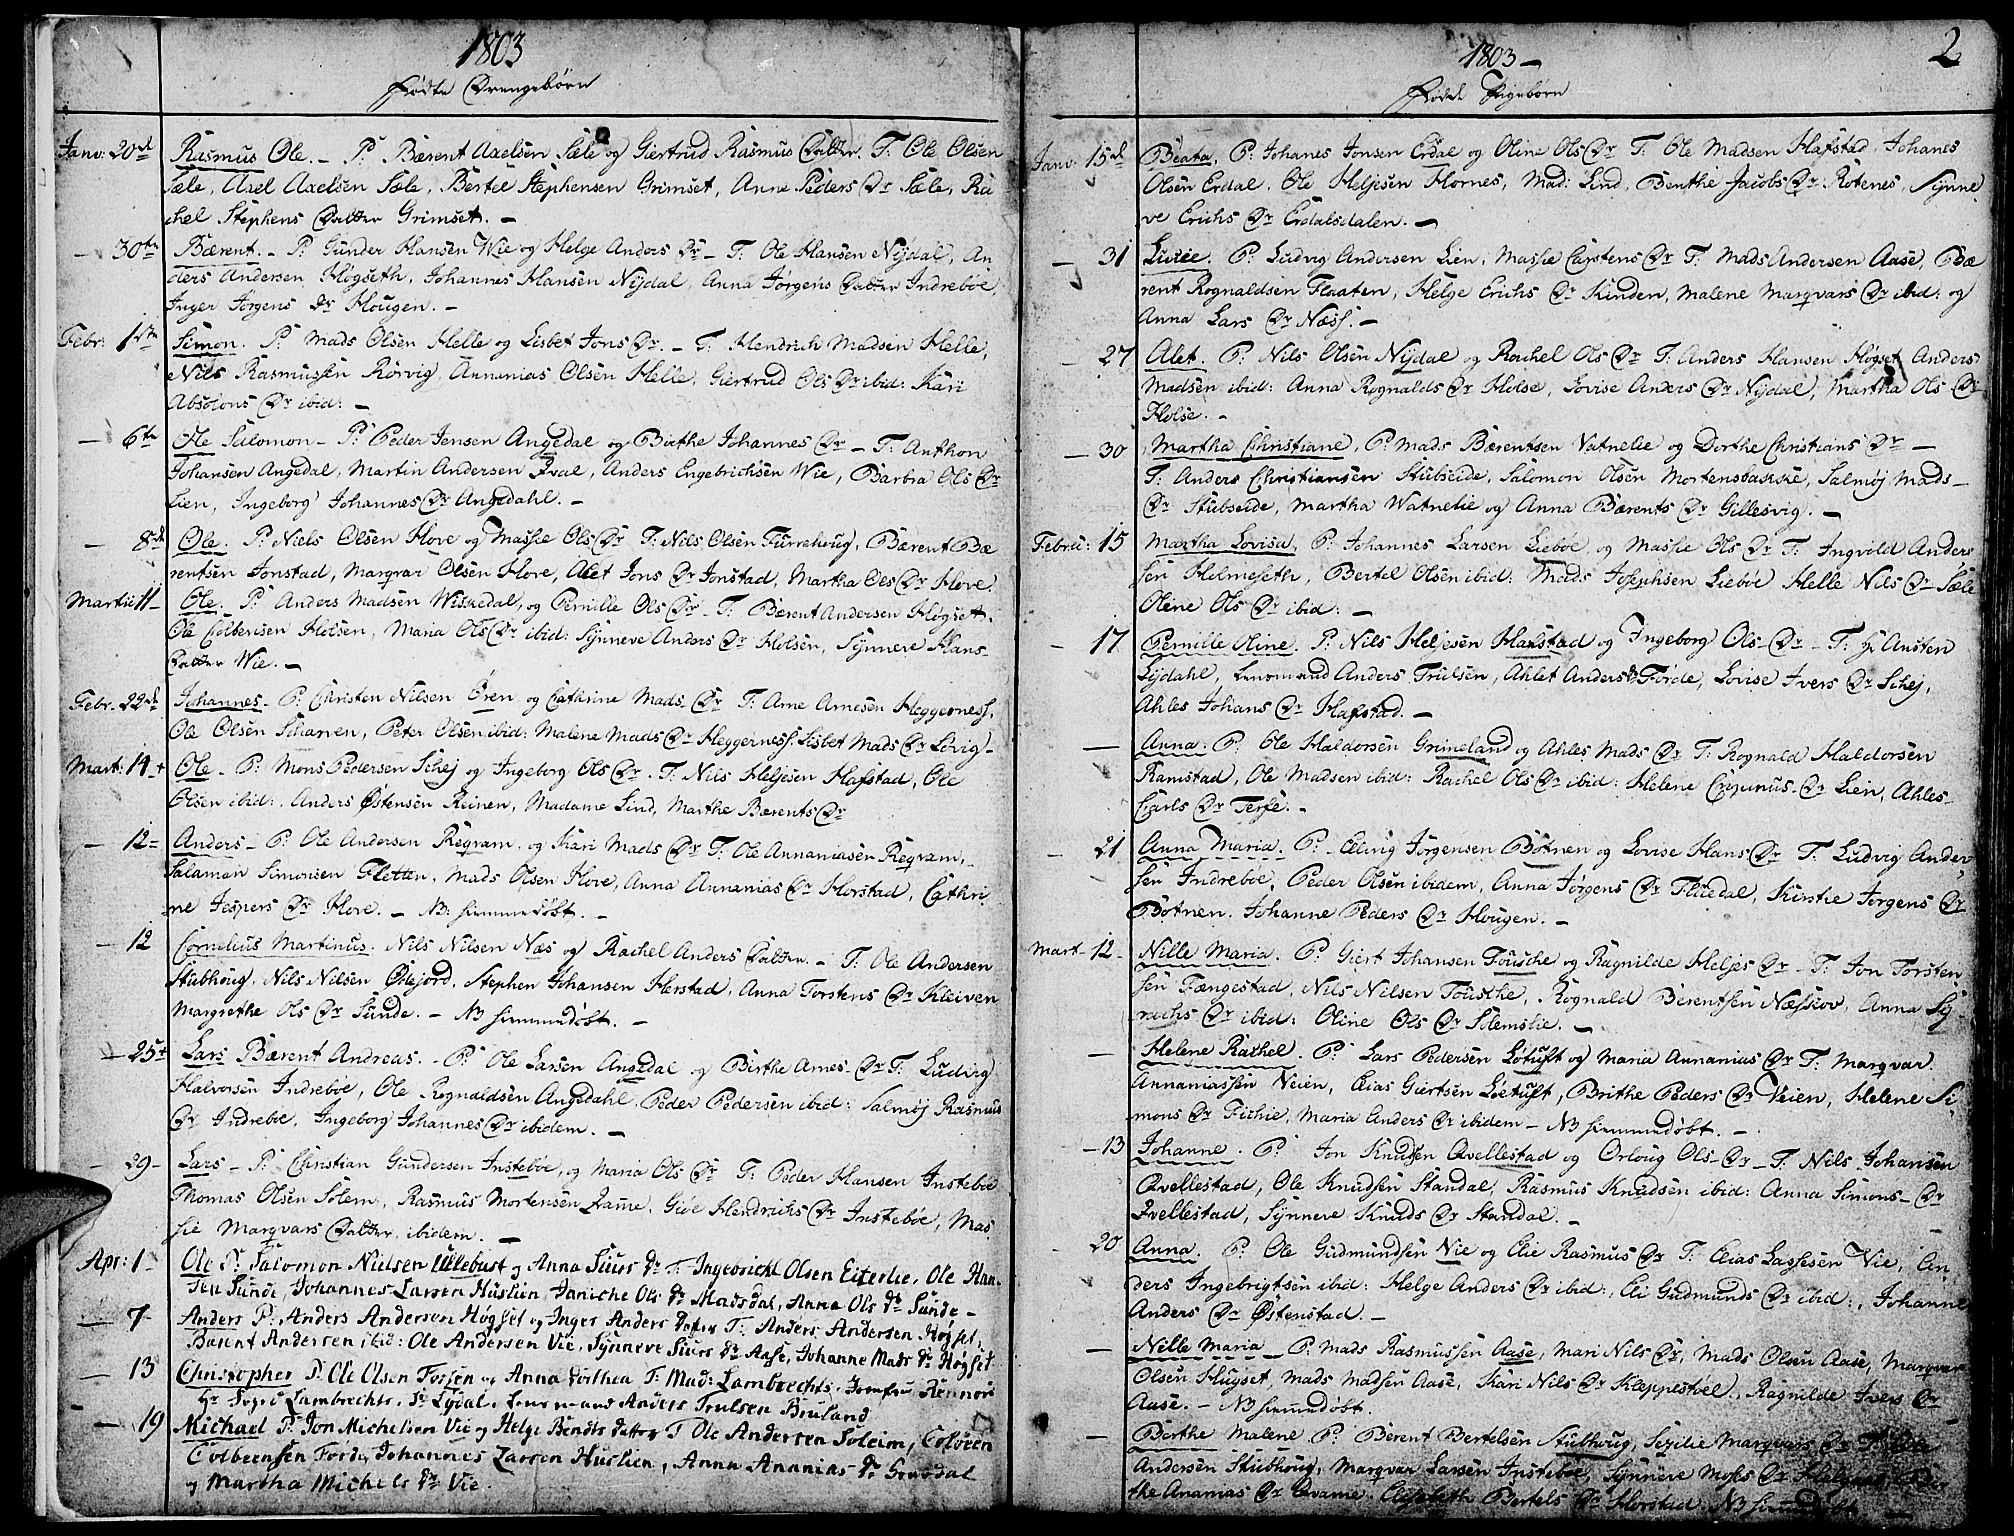 1803
Fødte Drengebörn
Janv: 20de Rasmus Ole. – P: Bærent Axelsen Sæle og Giertrud Rasmus Datter. T: Ole Olsen
Sæle, Axel Axelsen Sæle, Bertel Stephensen Grimset, Anne Peders Dr Sæle, Ra
chel Stephens Datter Grimset. –
– 30te Bærent. – P: Gunder Hansen Wie og Helge Anders Dr – T: Ole Hansen Nÿdal, An
ders Andersen Høgseth, Johannes Hansen Nÿdal, Anna Jørgens Datter Indrebøe,
Inger Jørgens Dr Hougen. –
Febr: 1ste Simon. P: Mads Olsen Helle og Lisbet Jons Dr. – T: Hendrich Madsen Helle,
Nils Rasmussen Rørvig, Annanias Olsen Helle, Giertrud Ols Dr ibid: Kari
Absolons Dr ibid: –
– 6te Ole Salomon – P: Peder Jensen Angedal og Birthe Johannes Dr – T: Anthon
Johansen Angedal, Martin Andersen Qval, Anders Engebrichsen Wie, Barbra Ols Dr
Lien, Ingeborg Johannes Dr Angedahl. –
– 8de Ole. P: Niels Olsen Hove og Massie Ols Dr T: Nils Olsen Furrehoug, Bærent Bæ
rentsen Jonstad, Marqvar Olsen Hove, Alet Jons Dr Jonstad, Martha Ols Dr Hove.
Martii 11 – Ole. P: Anders Madsen Wiskedal, og Pernille Ols Dr – T: Bærent Andersen Høgset,
Ole Colbensen Holsen, Maria Ols Dr ibid: Sÿnneve Anders Dr Holsen, Sÿnneve Hans-
Datter Wie. –
Febr. 22de Johannes – P: Christen Nilsen Ören og Cathrine Mads Dr T: Arne Arnesen Heggerness,
Ole Olsen Scharven, Peter Olsen ibid: Malene Mads Dr Heggerness. Lisbet Mads Dr Lövig –
Mart: 14 Ole – P: Mons Pedersen Schej og Ingeborg Ols Dr. T: Nils Heljesen Hafstad, Ole
Olsen ibid:, Anders Østensen Reinen, Madame Lind, Marthe Bærents Dr
– 12 – Anders – P: Ole Andersen Reqvam, og Kari Mads Dr T: Ole Annaniasen Reqvam,
Salamon Simonsen Fletten, Mads Olsen Hove, Anna Annanias Dr Horstad, Cathri
ne Jespers Dr Hove. – NB: hiemmedøbt. –
– 12 Cornelius Martinus. Nils Nilsen Næs og Rachel Anders Datter. – T: Ole Andersen
Stubhoug, Nils Nilsen Ødejord, Stephen Johansen Herstad, Anna Torstens Dr Kleiven
Margrethe Ols Dr Sunde. – NB hiemmedøbt. –
– 25 Lars Bærent Andreas. – P: Ole Larsen Angedal og Birthe Arnes – Dr T: Ludvig
Halvorsen Indrebøe, Ole Rognaldsen Angedahl, Peder Pedersen ibid: Salmøj Rasmus
Dr Indrebøe, Ingeborg Johannes Dr ibidem. –
– 29 – Lars – P: Christian Gundersen Instebøe, og Maria Ols Dr T: Peder Hansen Instebøe
Thomas Olsen Solem, Rasmus Mortensen Qvame, Give Hendrichs Dr Instebøe, Mas
sie Marqvars Datter ibidem. –
Apr: 1 – Ole P: Salomon Nielsen Ullebust og Anna Siurs Dr T: Ingebricht Olsen Eiterlie, Ole Han
sen Sunde, Johannes Larsen Huslien, Janiche Ols Dr Madsdal, Anna Ols Dr Sunde –
– 7 – Anders P: Anders Andersen Høgset og Inger Anders Datter T: Anders Andersen Høgset,
Bærent Andersen ibid: Ole Andersen Vie, Sÿnneve Siurs Dr Aase, Johanne Mads Dr Høgset
– 13 Christopher P: Ole Olsen Forsen og Anna Dorthea T: Mad: Lambrechts, Jomfru Rennord
Hr Foged Lambrechts, Hr Lydal, Lensmand Anders Trulsen Bruland
– 19 Michael P: Jon Michelsen Vie og Helge Bendts Datter T: Ole Andersen Soleim, Colbeen
Colbeensen Førde, Johannes Larsen Huslien, Anna Ananias Dr Gravdal
og Martha Michels Dr Vie.
1803 –
2
Fødde Pigebørn
Janv: 15de Beata, P: Johanes Jonsen Erdal og Oline Ols Dr T: Ole Madsen Hafstad, Johanes
Olsen Erdal. Ole Heljesen Hornes, Mad: Lind, Benthe Jacobs Dr Rotenes, Sÿnne
ve Erichs Dr Erdalsdalen. –
– 31 Livie. P: Ludvig Andersen Lien, Massie Carstens Dr T: Mads Andersen Aase, Bæ
rent Rognaldsen Flaaten, Helge Erichs Dr Kinden, Malene Marqvars Dr ibid: og
Anna Lars Dr Næss. –
– 27 Alet. P: Nils Olsen Nÿdal og Rachel Ols Dr T: Anders Hansen Høgset, Anders
Madsen ibid: Anna Rognalds Dr Holse, Lovise Anders Dr Nÿdal, Martha Ols Dr
Holse. –
– 30 Martha Christiane, P: Mads Bærentsen Vatnelie og Dorthe Christians Dr –
T: Anders Christiansen Stubseide, Salomon Olsen Mortensbakke, Salmøj Mads –
Dr Stubseide, Martha Watnelie og Anna Bærents Dr Gillesvig. –
Febru: 15 Martha Lovisa, P: Johannes Larsen Liebøe og Massie Ols Dr T: Ingvold Ander
sen Holmeseth, Bertel Olsen ibid: Mads Josephsen Liebøe Helle Nils Dr Sæle
Oline Ols Dr ibid: –
– 17 Pernille Oline. P: Nils Heljesen Hafstad og Ingeborg Ols – Dr – T: Hr Austen
Lÿdahl, Lensmand Anders Trulsen, Ahlet Anders Dr Førde, Lovise Ivers Dr Schej,
Ahles Johans Dr Hafstad. –
– Anna. P: Ole Haldorsen Grimeland og Ahles Mads Dr T: Rognald Haldorsen
Ramstad, Ole Madsen ibid: Rachel Ols Dr ibid: Helene – Dr Lien, Ahles –
Carls Dr Terje. –
– 21 Anna Maria. P: Elling Jørgensen Botnen og Lovise Hans Dr T: Ludvig Ander
sen Indrebøe, Peder Olsen ibidem, Anna Jørgens Dr Fluedal, Kirstie Jørgens Dr
Botnen. Johanne Peders Dr Hougen. –
Mart – 12 – Nille Maria. P: Giert Johansen Tousche og Ragnilde Heljes Dr – T: Jon Torsten
sen Fængestad, Nils Nilsen Tousche, Rognald Berentsen Næsskov, Anna Sÿ
rachs Dr ibid: Oline Ols Dr Solemslie. –
– Helene Rachel. P: Lars Pedersen Løtuft og Maria Annanias Dr T: Marqvar
Annaniassen Veien, Elias Giertsen Løetuft, Brithe Peders Dr Veien, Helene Si
mons Dr Fichie, Maria Anders Dr ibidem – NB hiemmedøbt. –
– 13 Johanne. P: Jon Knudsen Qvellestad og Orloug Ols – Dr – T: Nils Johansen
Qvellestad, Ole Knudsen Standal, Rasmus Knudsen ibid: Anna Simons – Dr
Qvellestad, Sÿnneve Knuds Dr Standal. –
– 20 Anna. P: Ole Gudmundsen Vie og Elie Rasmus Dr T: Elias Lassesen Vie, An
ders Ingebrigtsen ibid: Helge Anders Dr ibid:, Eli Gudmunds Dr ibid:, Johanne
Anders Dr Østenstad. –
– Nille Maria – P: Mads Rasmussen Aase, Mari Nils Dr, Mads Olsen Aase, Marqvar
Olsen Hugset, Mads Madsen Aase, Kari Nils Dr Kleppestøel, Ragnilde Ivers Dr
Aase. – NB hiemmedøbt.
– Birthe Malene P: Berent Bertelsen Stubhoug, Sesilie Marqvars Dr T: Ole
Andersen Stubhoug, Marqvar Larsen Instebøe, Sÿnneve Moses Dr Bir
the Ananias Dr Qvame. Elisabeth Bertels Dr Horstad. NB hiemmedøbt. –